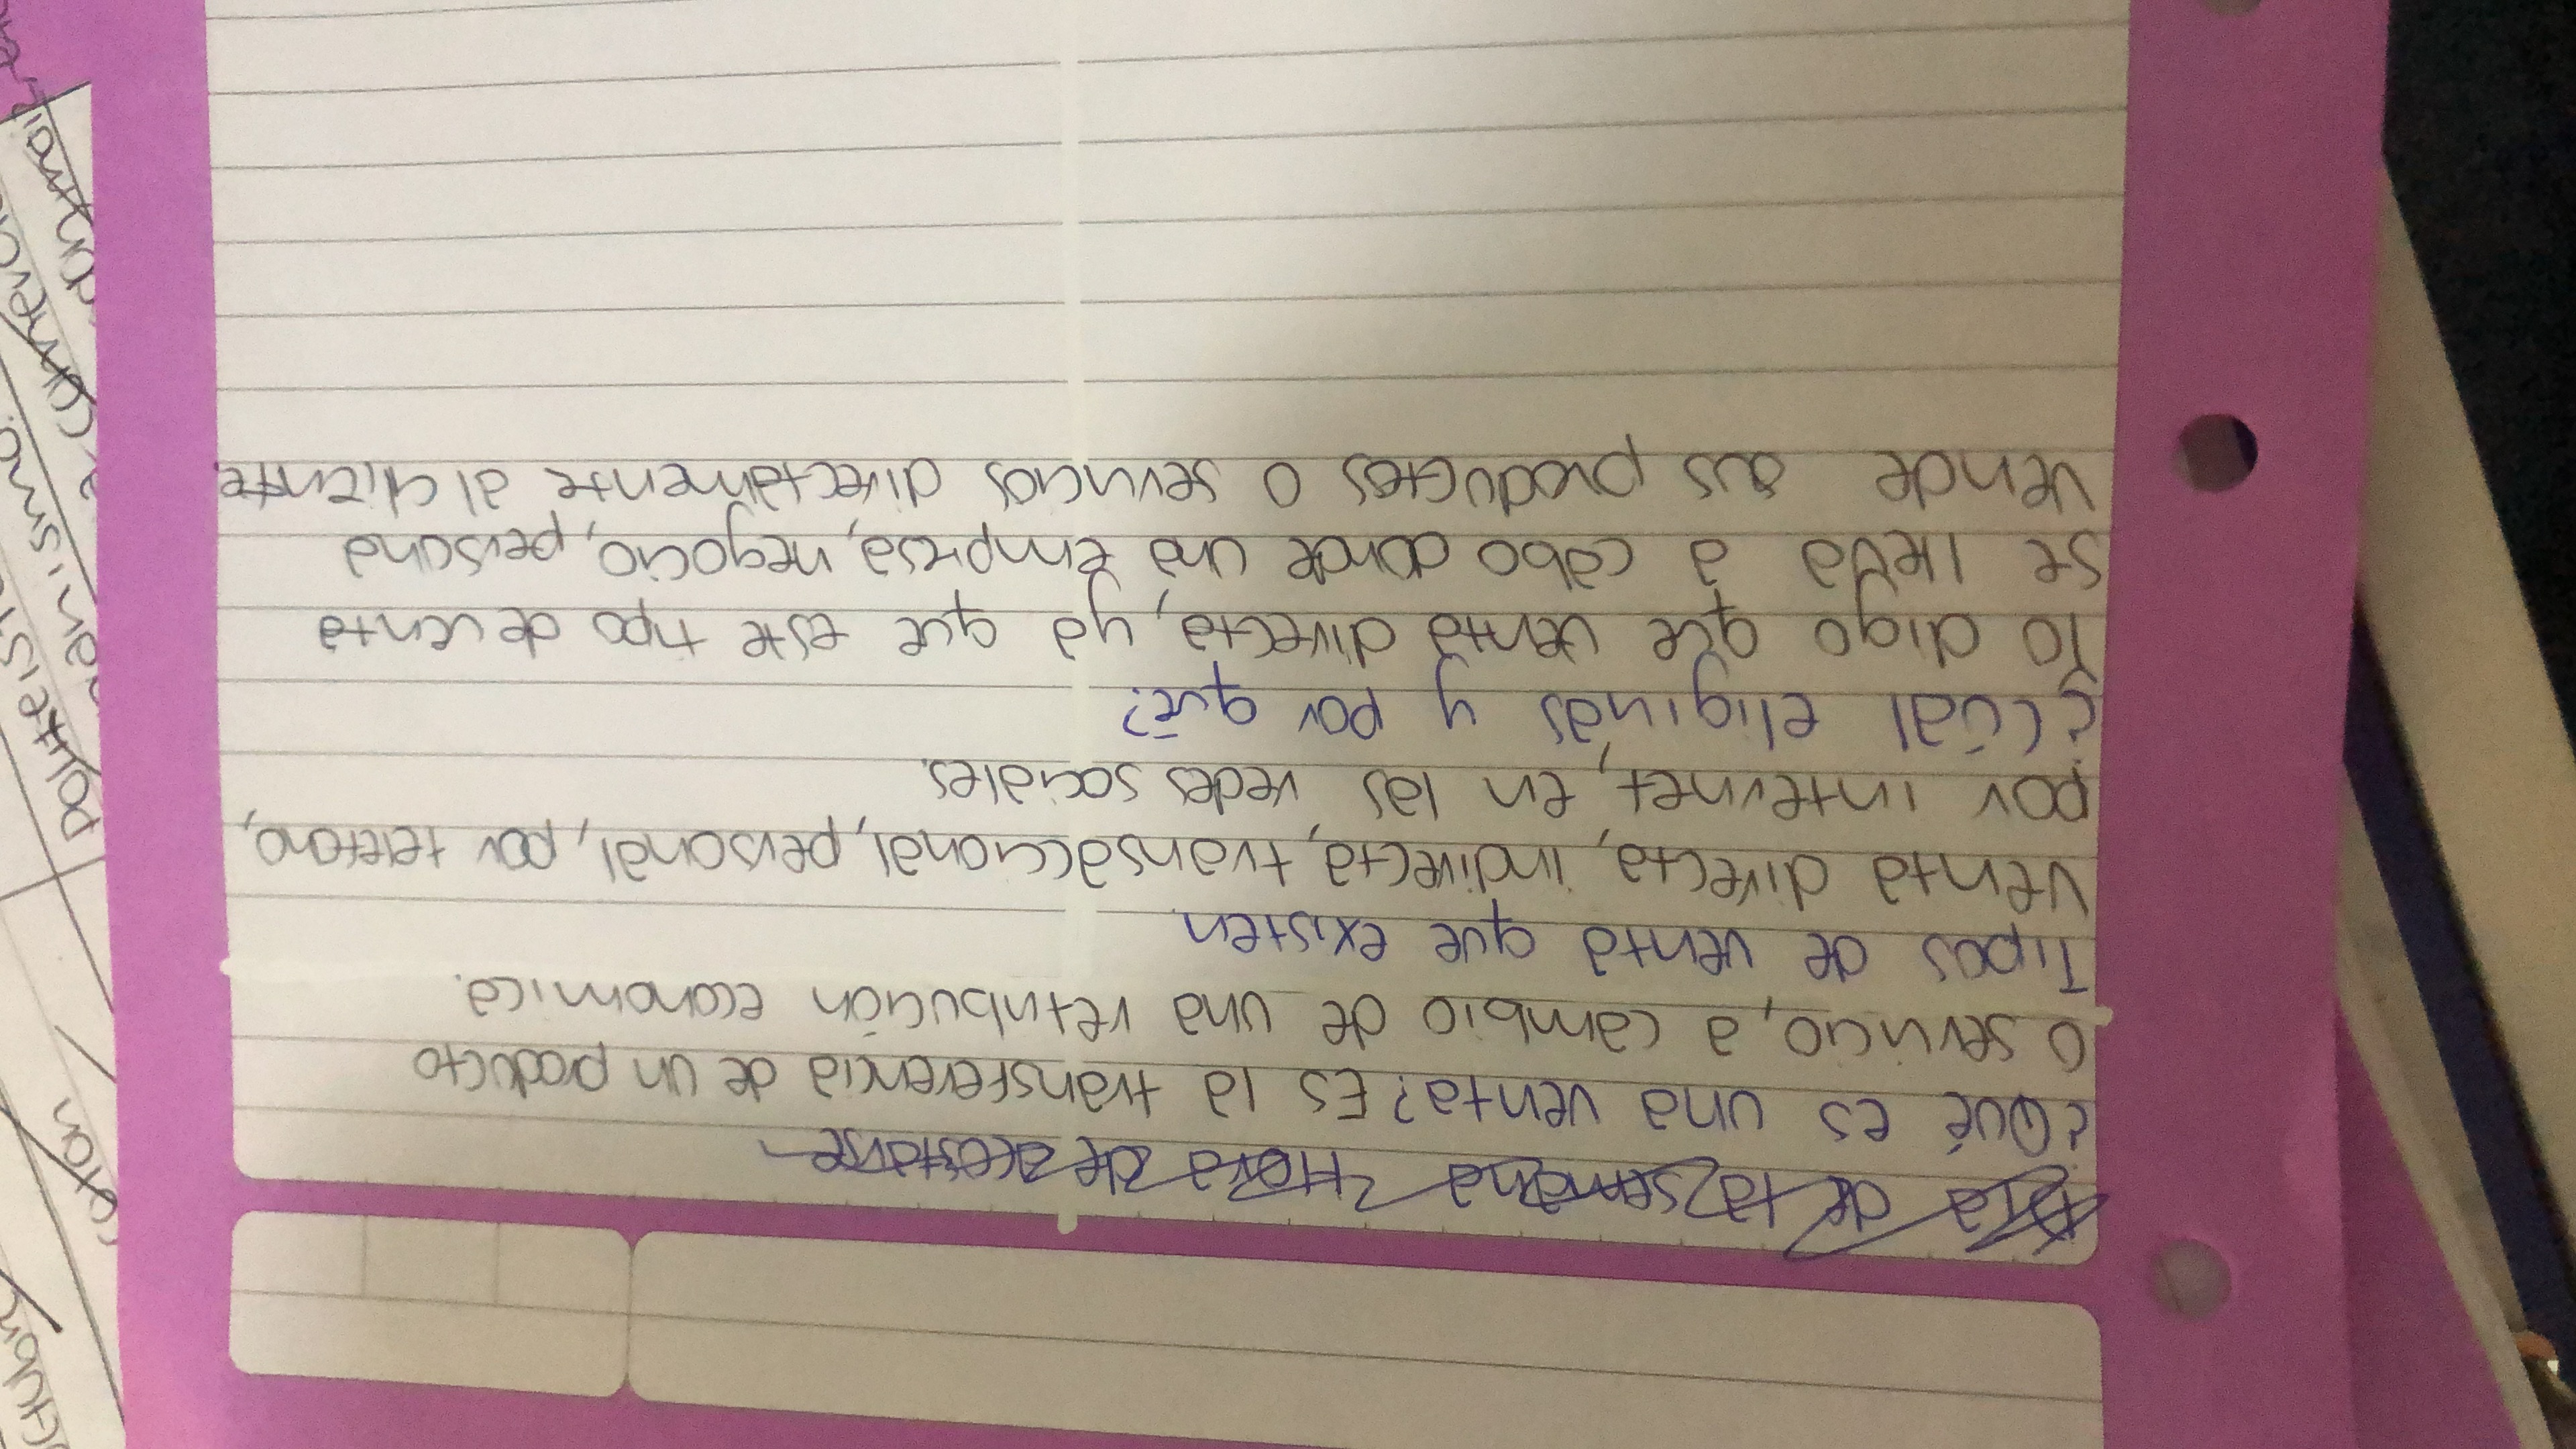 Día de la semana Hora de acostarse
¿Qué es una venta? Es la transferencia de un producto
o servicio, a cambio de una retribución económica.
Tipos de venta que existen
Venta directa, indirecta, transaccional, personal, por teléfono,
por internet, en las redes sociales.
¿Cúal eligirias y por qué?
Yo digo que venta directa, ya que este tipo de venta
se lleva a cabo donde una empresa, negocio, persona
vende sus productos o servicios directamente al cliente